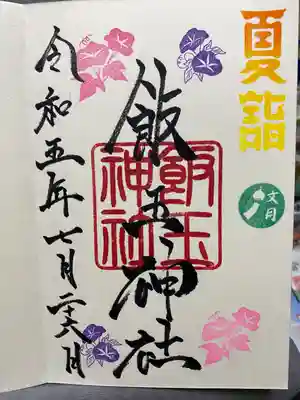 夏詣
文月
飯玉神社
飯玉
神社
令和五年七月廿六日